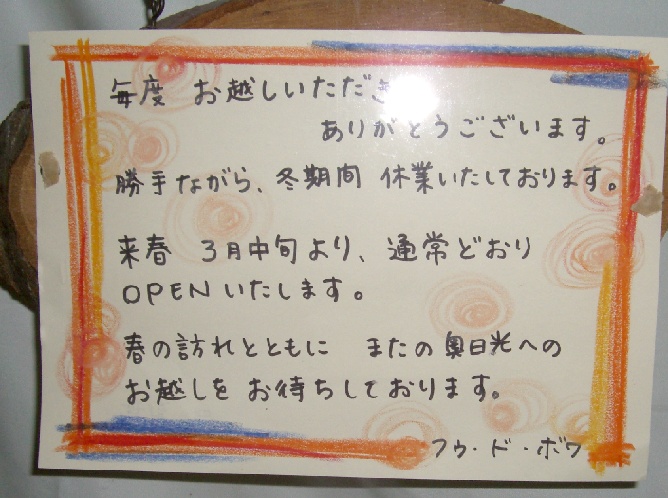 毎度 お越しいただき
ありがとうございます。
勝手ながら、冬期間 休業いたしております。
来春 3月中旬より、通常どおり
OPENいたします。
春の訪れとともに またの奥日光への
お越しを お待ちしております。
フウ・ド・ボワ